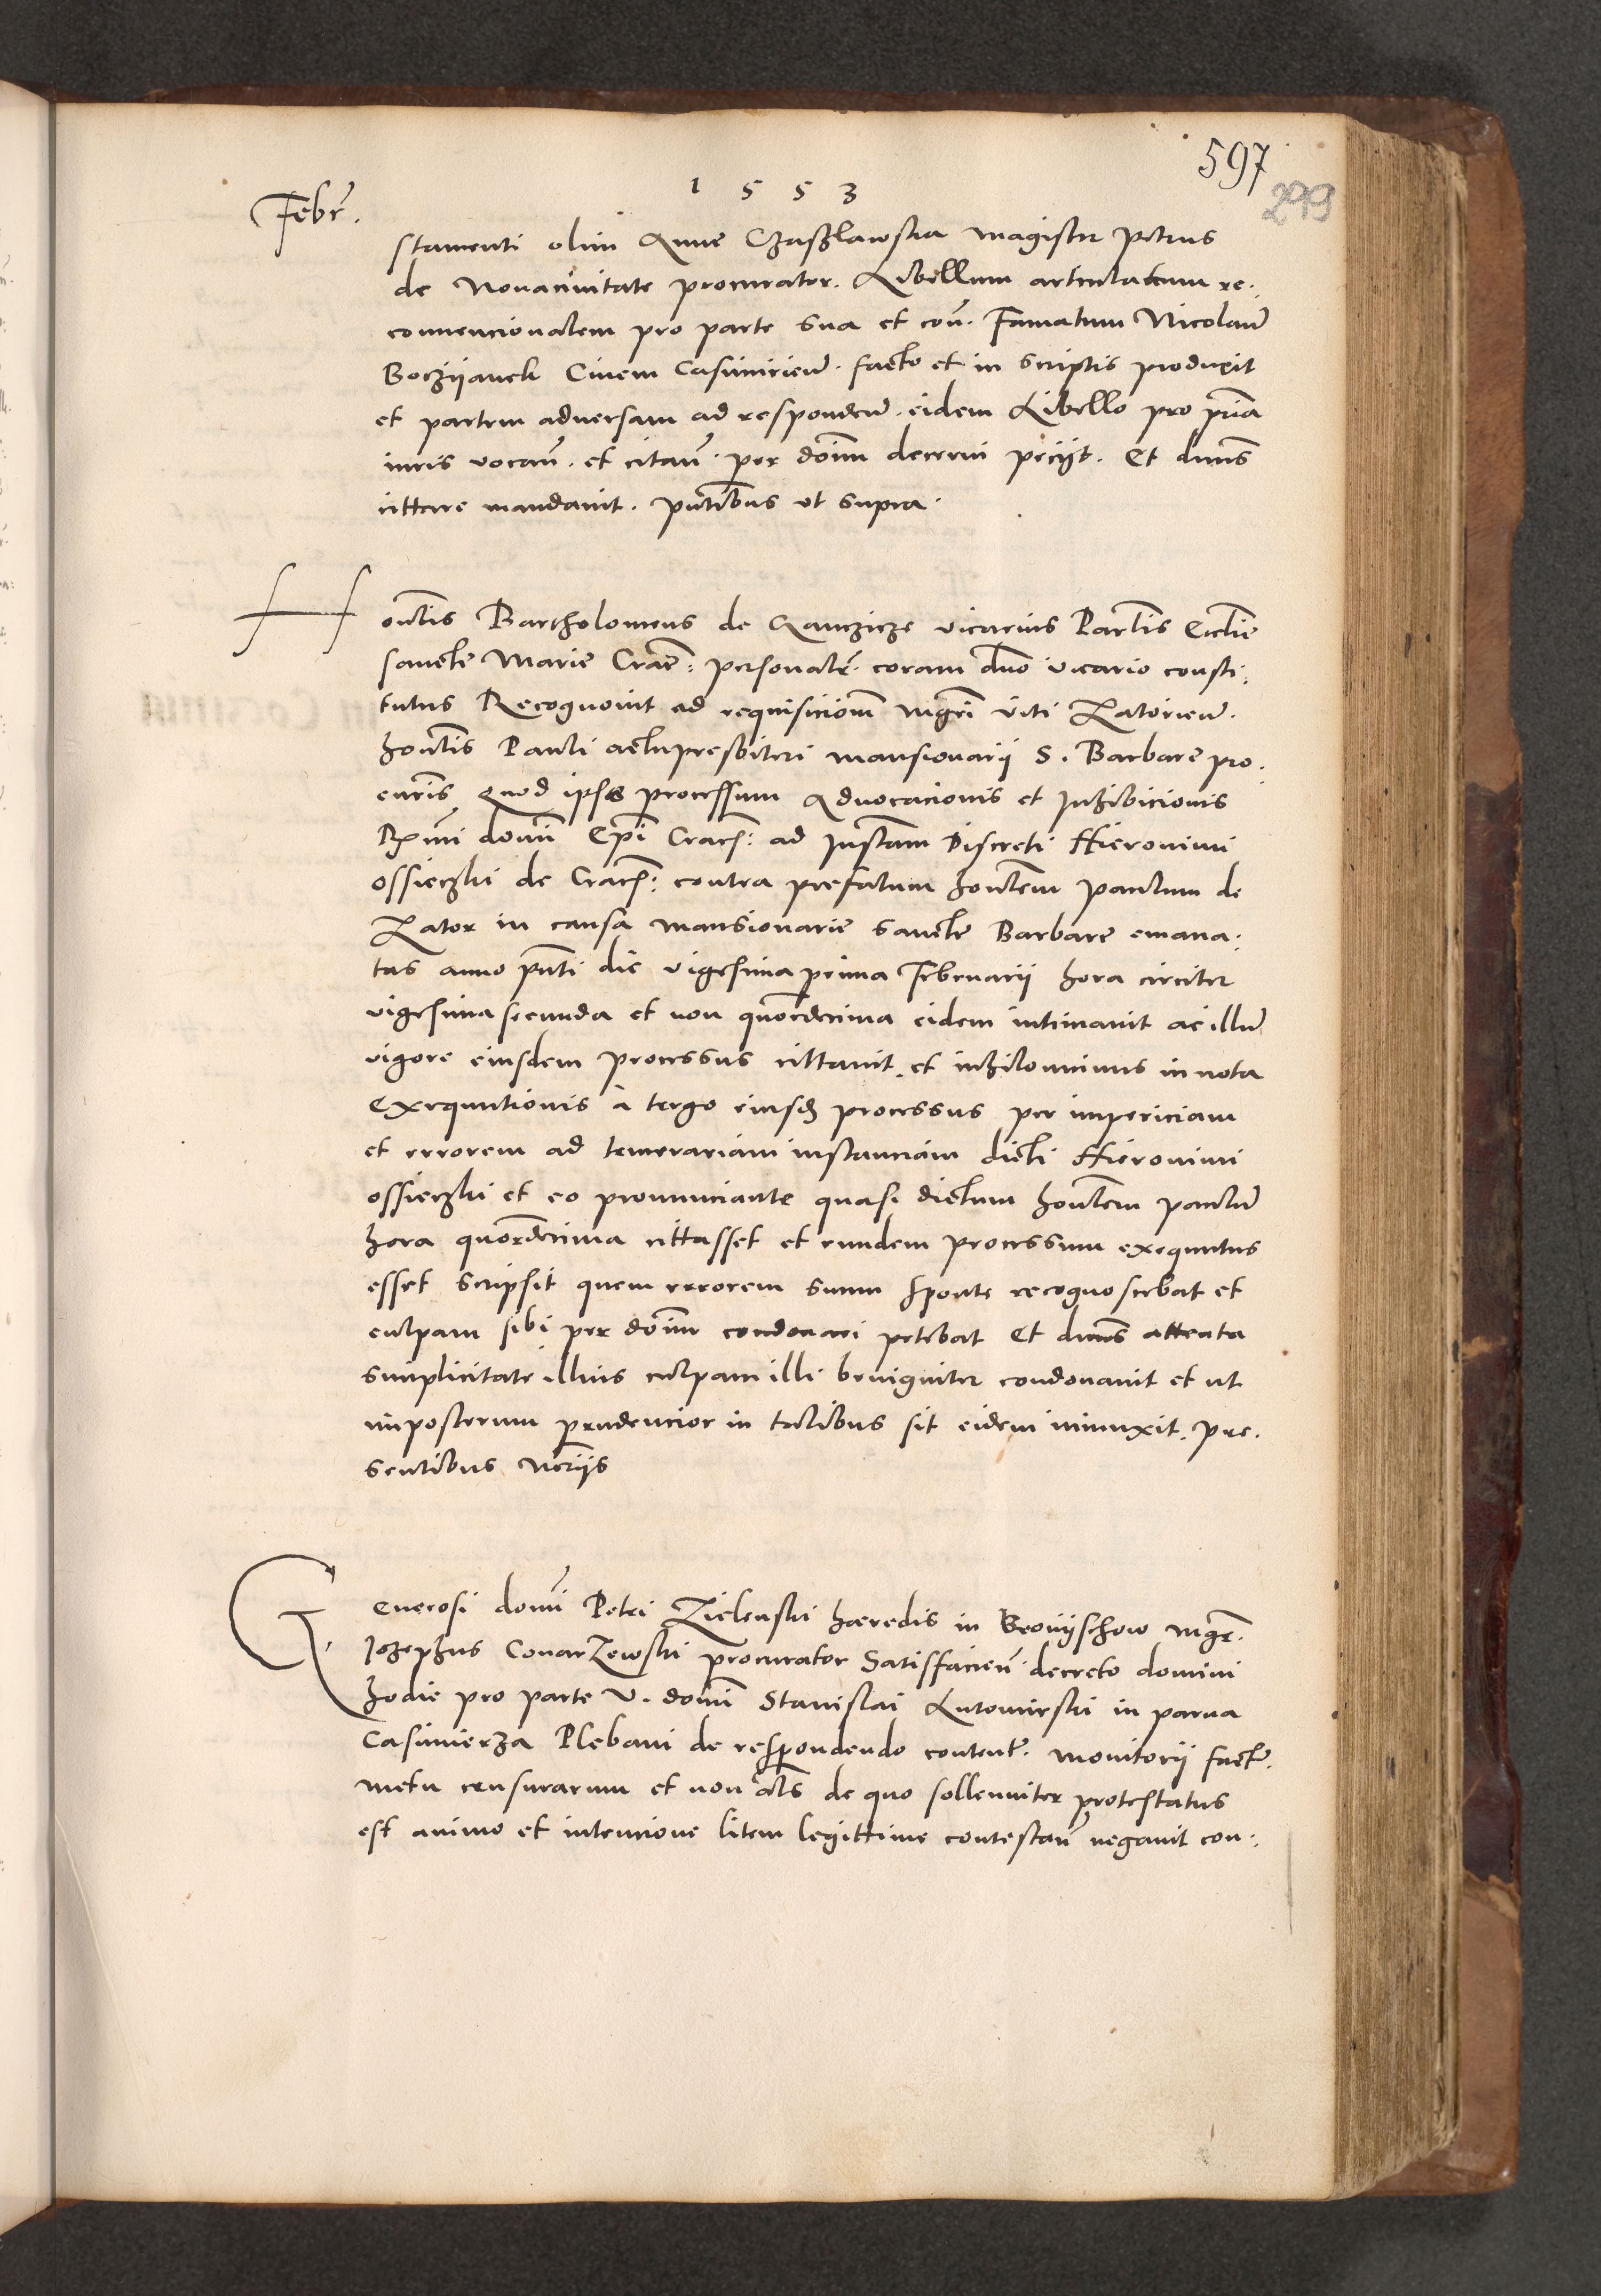 597
299
1 5 5 3
Febr̃.
stamenti olim Anne Czaszlawska magister Petrus
de Novacivitate procurator. Libellum articulatum re:
convencionalem pro parte sua et coñ. Famatum Nicolaũ
Boczijanek Civem Casimirieñ. facto et in scriptis produxit
et partem adversam ad respondeñ. eidem Libello pro p̃ria
iuris vocañ. et citañ. per dõim decerni peciit. Et dnus̃
cittare mandavit. p̃ntibus ut supra.
Honl̃is Bartholomeus de vicarius Par̃lis Ecclĩe
sancte Marie Crac̃: personalr̃. coram dño vicario consti:
tutus Recognovit ad requisicionẽ mgr̃i Viti Zatorieñ.
honl̃is Pauli altipresbiteri mansionarii S. Barbare pro:
curr̃is quod ipse processum Advocacionis et Inhibicionis
Rx̃mi domĩ Ep̃i Crac̃: ad Inst̃am Discreti Hieronimi
ossieczki de Crac̃: contra prefatum honl̃em Paulum de
Zator in causa mansionarie sancte Barbare emana:
tas anno p̃nti die vigesima prima Februarii hora circiter
vigesima secunda et non quor̃decima eidem intimavit ac illũ
vigore eiusdem processus cittavit et inhilominus in nota
Exequutionis à tergo eiusd̃ processus per impericiam
et errorem ad temerariam instanciam dicti Hieronimi
ossieczki et eo pronunciante quasi dictum honl̃em Paulũ
hora quor̃decima cittasset et eundem processum exequutus
esset scripsit quem errorem suum sponte recognoscebat et
culpam sibi per dõim condonari petebat Et dnus̃ attenta
simplicitate illius culpam illi benigniter condonavit et ut
imposterum prudencior in talibus sit eidem iniunxit. pre:
sentibus Nor̃iis
Generosi domĩ Petri Zielenski hæredis in mgr̃.
Jozephus Conarzewski procurator Satisfacieñ. decreto domini
hodie pro parte V. domĩ Stanislai Lutomirski in parva
Casimierza Plebani de respondendo content̃. monitorii fact̃.
metu censurarum et non al̃s de quo sollenniter protestatus
est animo et intencione litem legittime contestañ negavit con: